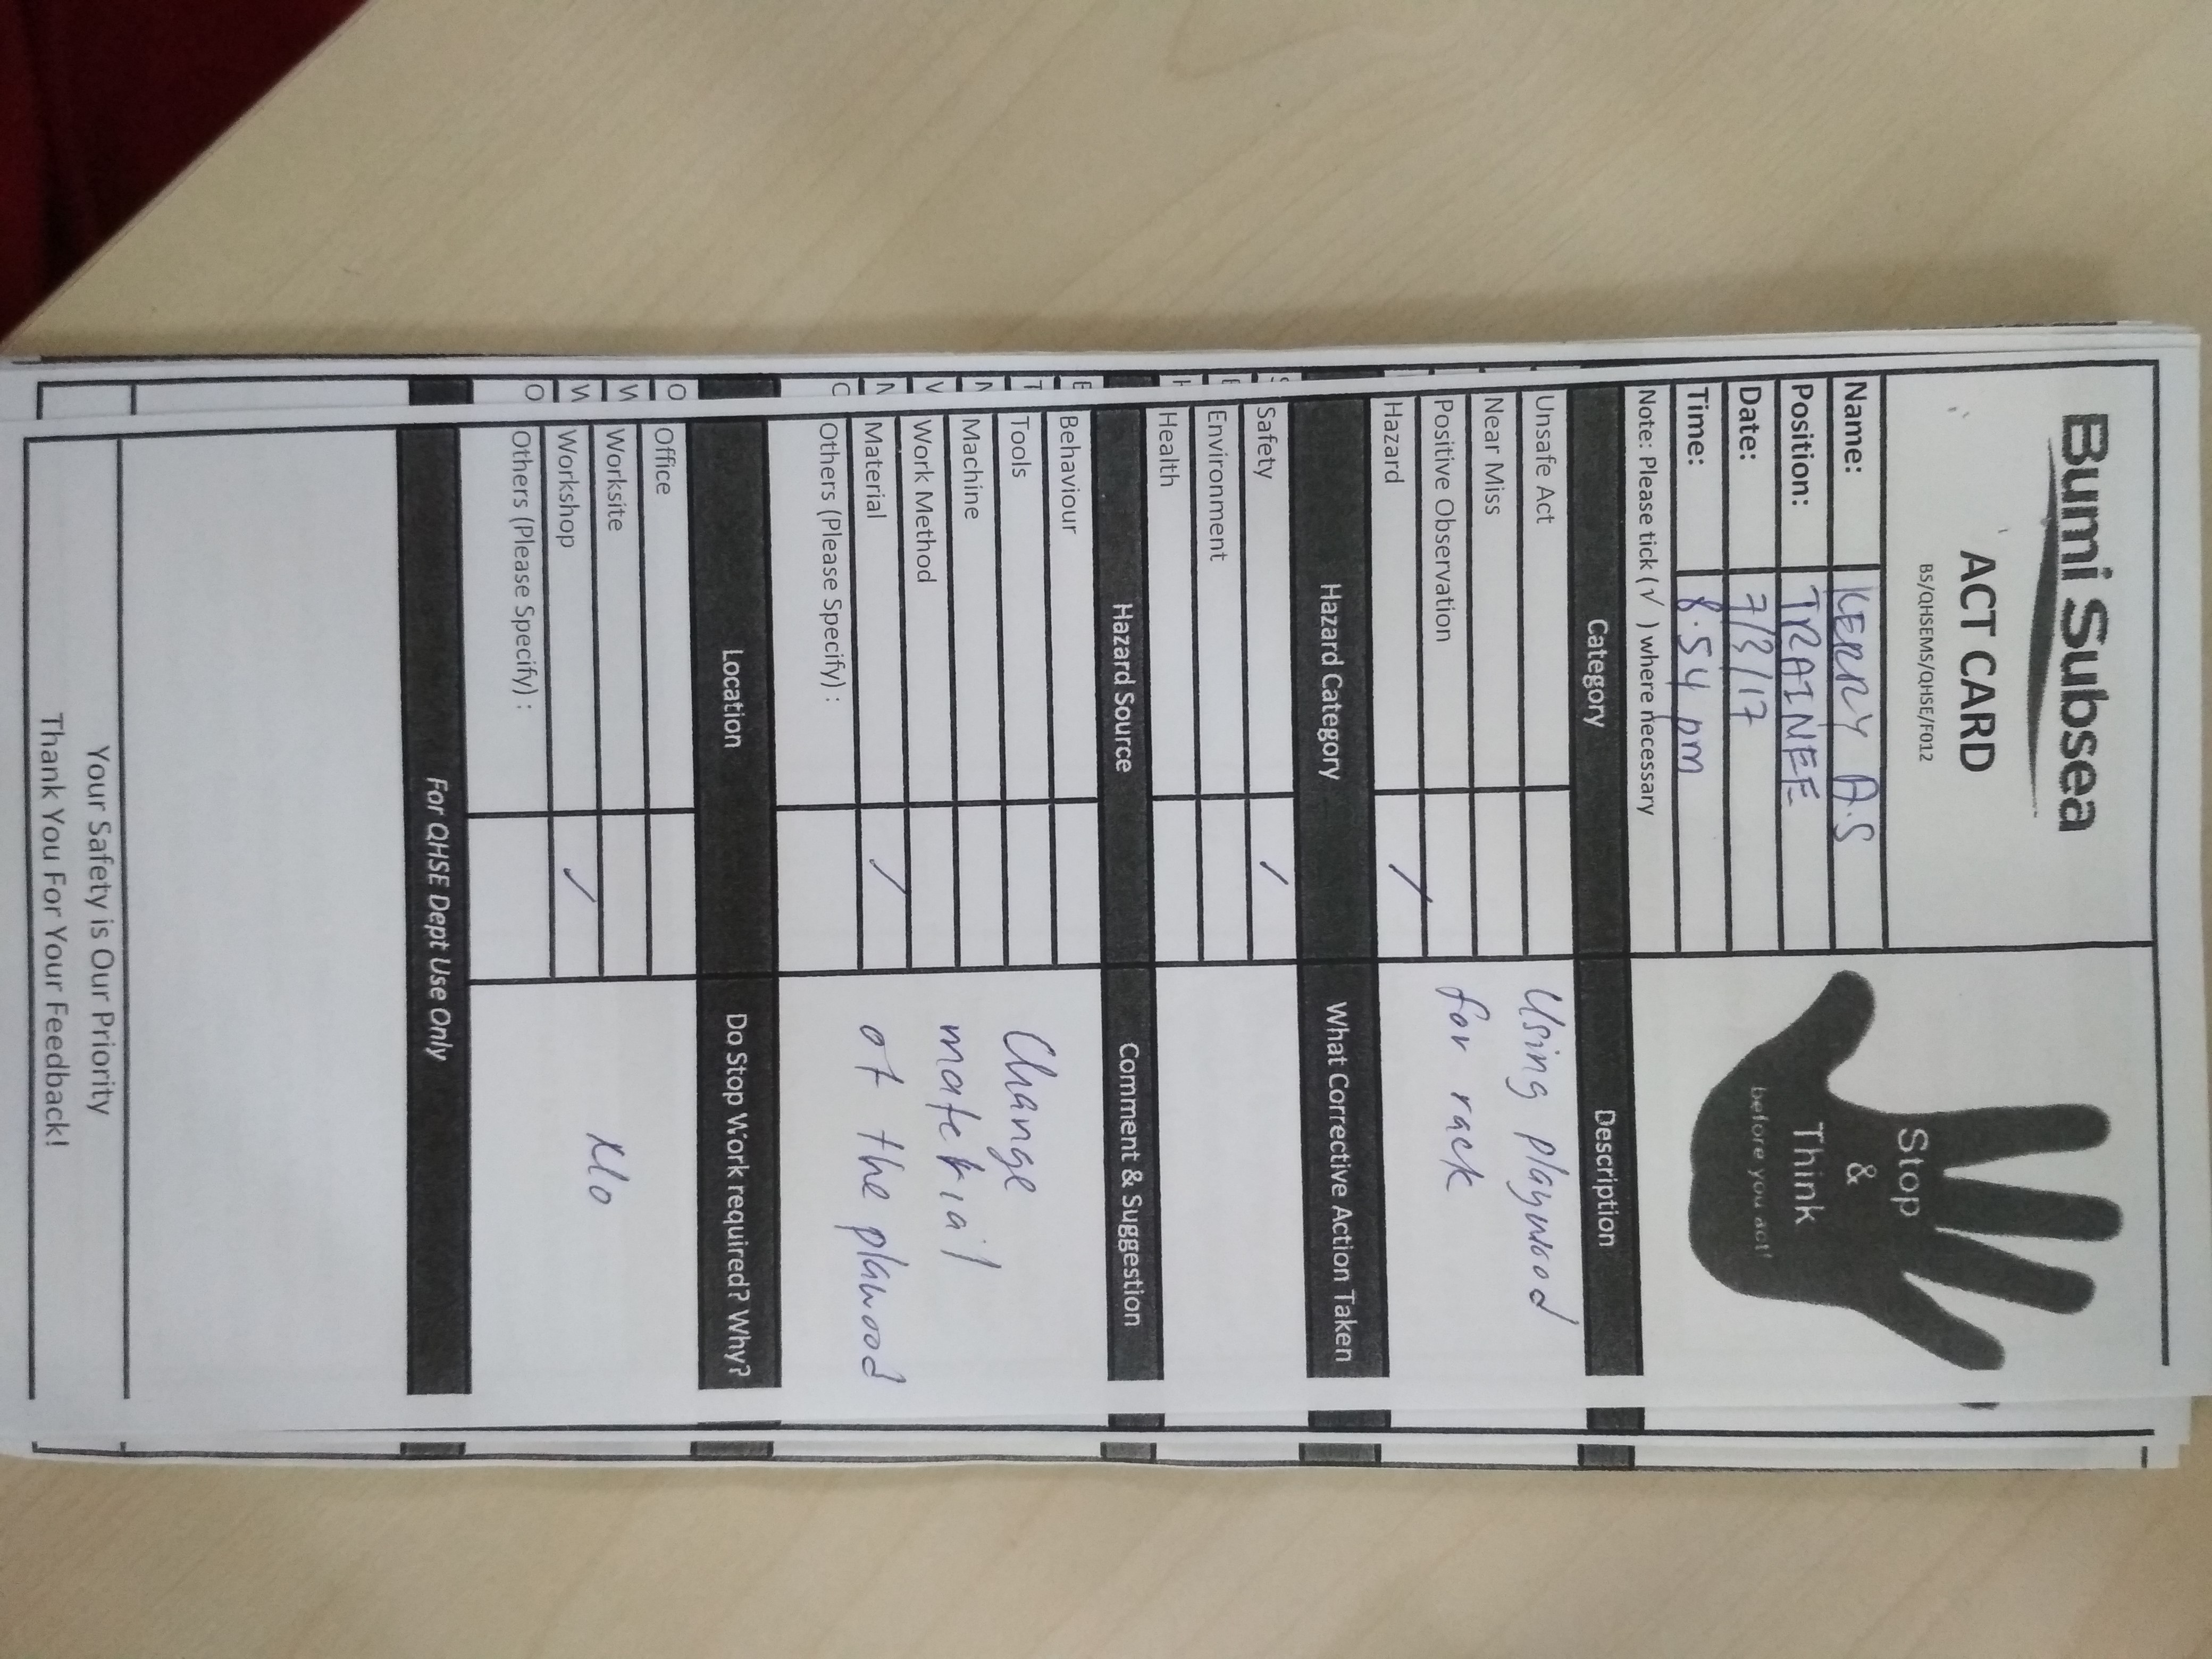 Bumi Subsea
ACT CARD
BS/QHSEMS/QHSE/F012
Stop
&
Think
before you act!
Name: KERRY A.S
Position: TRAINEE
Date: 7/3/17
Time: 8.54 pm
Note: Please tick (√ ) where necessary
Category Description
Unsafe Act
Near Miss
Positive Observation
Hazard /
Using playwood
for rack
Hazard Category What Corrective Action Taken
Safety /
Environment
Health
Hazard Source Comment & Suggestion
Behaviour
Tools
Machine
Work Method
Material /
Others (Please Specify) :
Change
material
of the plawood
Location Do Stop Work required? Why?
Office
Worksite
Workshop /
Others (Please Specify) :
No
For QHSE Dept Use Only
Your Safety is Our Priority
Thank You For Your Feedback!